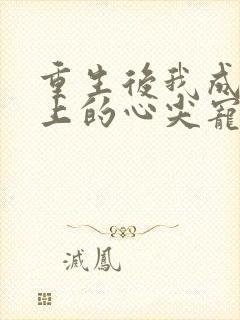 重生後我成
上的心尖寵
滅鳳